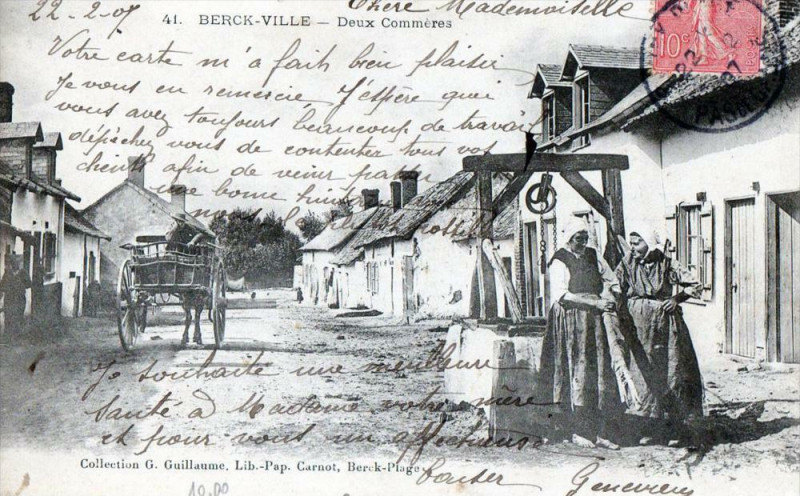 22-2-07
Chère Mademoiselle
41. BERCK-VILLE — Deux Commères
Votre carte m'a fait bien plaisir
Je vous en remercie J'espère que
vous avez toujours beaucoup de travail
dépéchez vous de contenter tous vos
clients afin de venir passer
une bonne
Je souhaite une meilleure
santé à Madame votre mère
et pour vous un affectueux
baiser Genevieve
Collection G. Guillaume, Lib.-Pap. Carnot, Berck-Plage
10.00
10c